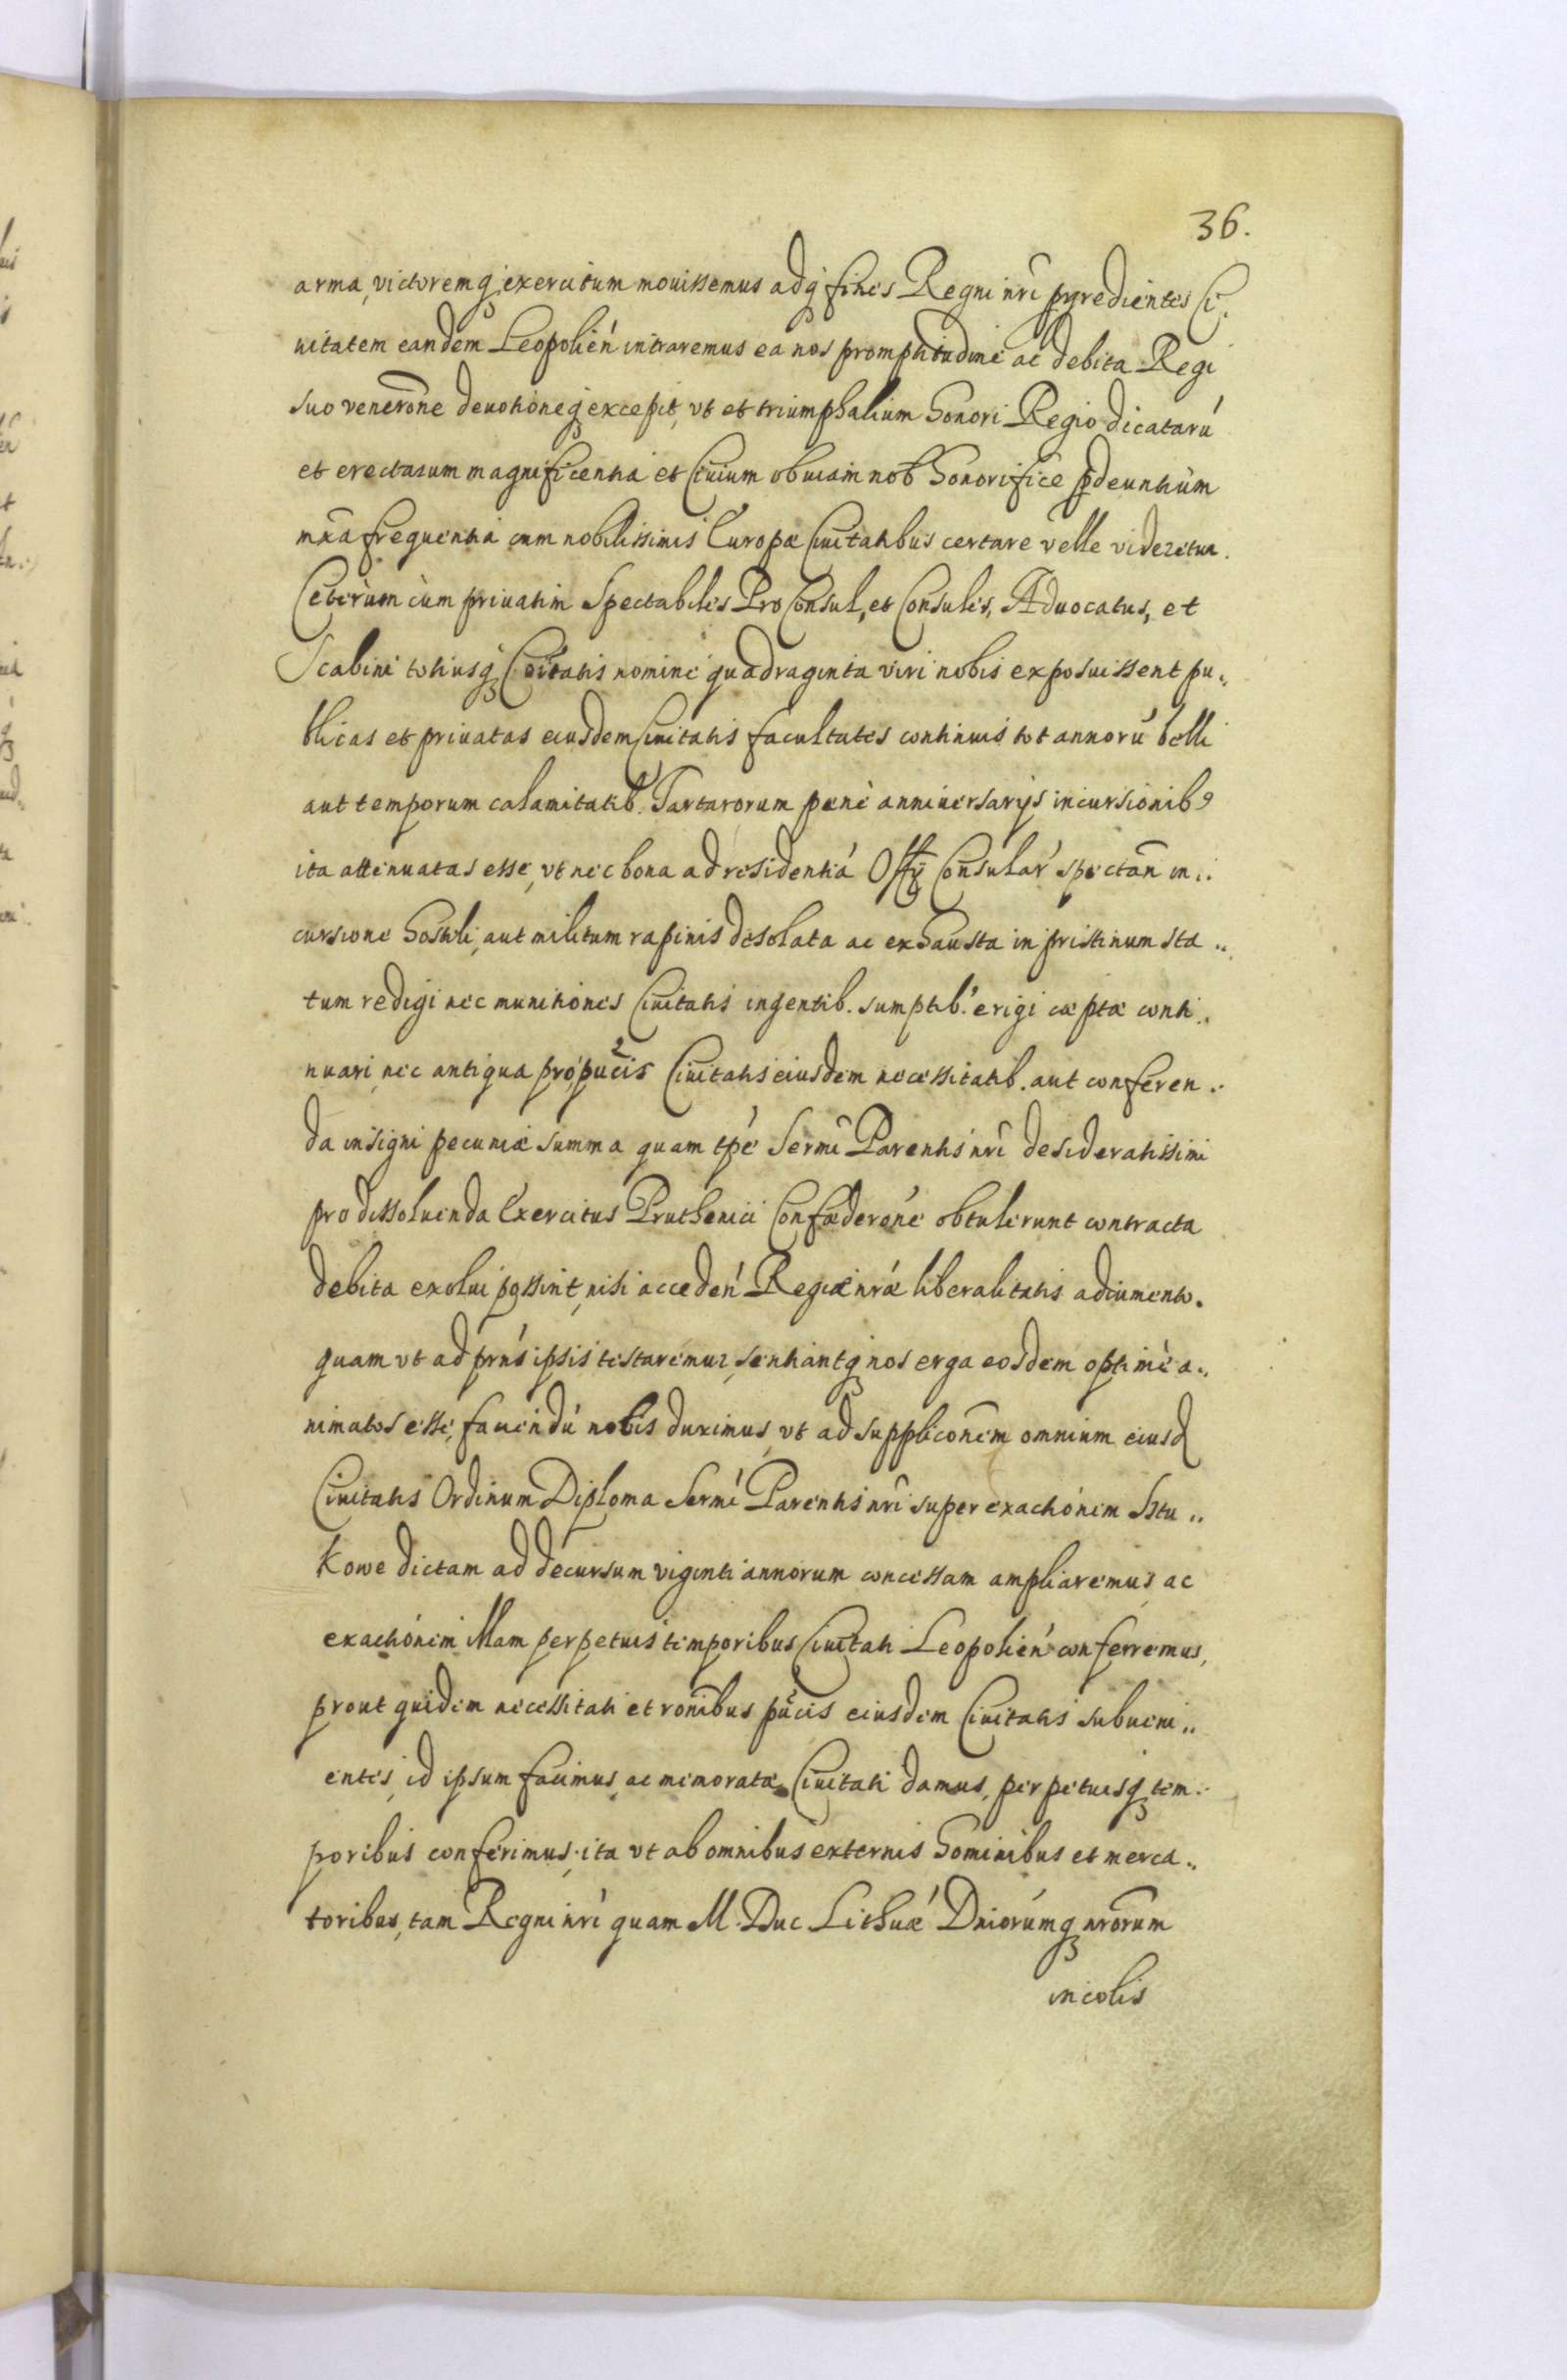 36.
arma, victoremq; exercitum mouissemus adq; fines Regni nrî pgredientes Ci..
uitatem eandem Leopolień intraremus ea nos promptitudine ac debita Regi
suo venerone deuotioneq; excepit, vt et triumphalium honori Regio dicatarú
et erectarum magnificentia et Ciuium obuiam nob honorifice pdeuntium
mxa frequentia cum nobilissimis Europæ Ciuitatibus certare velle videretur.
Ceterùm cùm priuatim Spectabiles ProConsul, et Consules, Aduocatus, et
Scabini totiusq; Coitatis nomine quadraginta viri nobis exposuissent pu..
blicas et priuatas eiusdem Ciuitatis facultates continuis tot annorú belli
aut temporum calamitatib. Tartarorum pæne anniuersarijs incursionib9
ita attenuatas esse, vt nec bona ad residentiá Offij Consulaŕ spectan in..
cursione hostili, aut militum rapinis desolata ac exhausta in pristinum sta..
tum redigi nec munitiones Ciuitatis ingentib. sumptib. erigi cæptæ conti..
nuari, nec antiqua pro pucis Ciuitatis eiusdem necessitatib. aut conferen..
da insigni pecuniæ summa quam tpé Sermi Parentis nrî desideratissimi
pro dissoluenda Exercitus Pruthenici Confæderone obtulerunt contracta
debita exolui possint, nisi accedeń Regiæ nræ liberalitatis adiumento.
quam vt ad prns ipsis testaremur, sentiantq; nos erga eosdem optimè a..
nimatos esse, fauendú nobis duximus, vt ad suppliconem omnium eiusd
Ciuitatis Ordinum Diploma Sermi Parentis nrî super exactionem Sztu..
kowe dictam ad decursum viginti annorum concessam ampliaremus, ac
exactionem illam perpetuis temporibus Ciuitati Leopolień conferremus,
prout quidem necessitati et ronibus pucis eiusdem Ciuitatis subueni..
entes, id ipsum facimus, ac memoratæ Ciuitati damus, perpetuisq; tem..
poribus conferimus, ita vt ab omnibus externis hominibus et merca..
toribus, tam Regni nrî quam M. Duc Lithuæ Dniorumq; nrorum
incolis